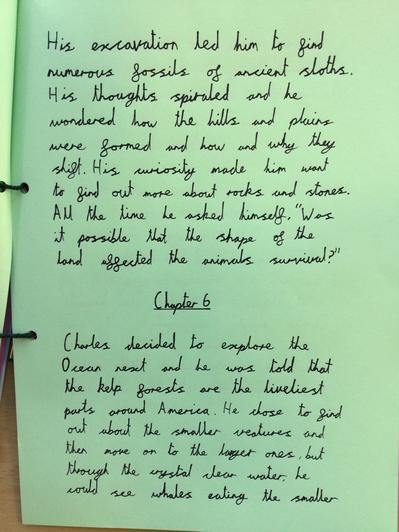 His excavation led him to find
numerous fossils of ancient sloths.
His thoughts spiraled and he
wondered how the hills and plains
were formed and how and why they
shift. His curiosity made him want
to find out more about rocks and stones.
All the time he asked himself, "Was
it possible that the shape of the
land affected the animals survival?"
Chapter 6
Charles decided to explore the
Ocean next and he was told that
the kelp forests are the liveliest
parts around America. He chose to find
out about the smaller creatures and
then move on to the larger ones, but
through the crystal clear water, he
could see whales eating the smaller